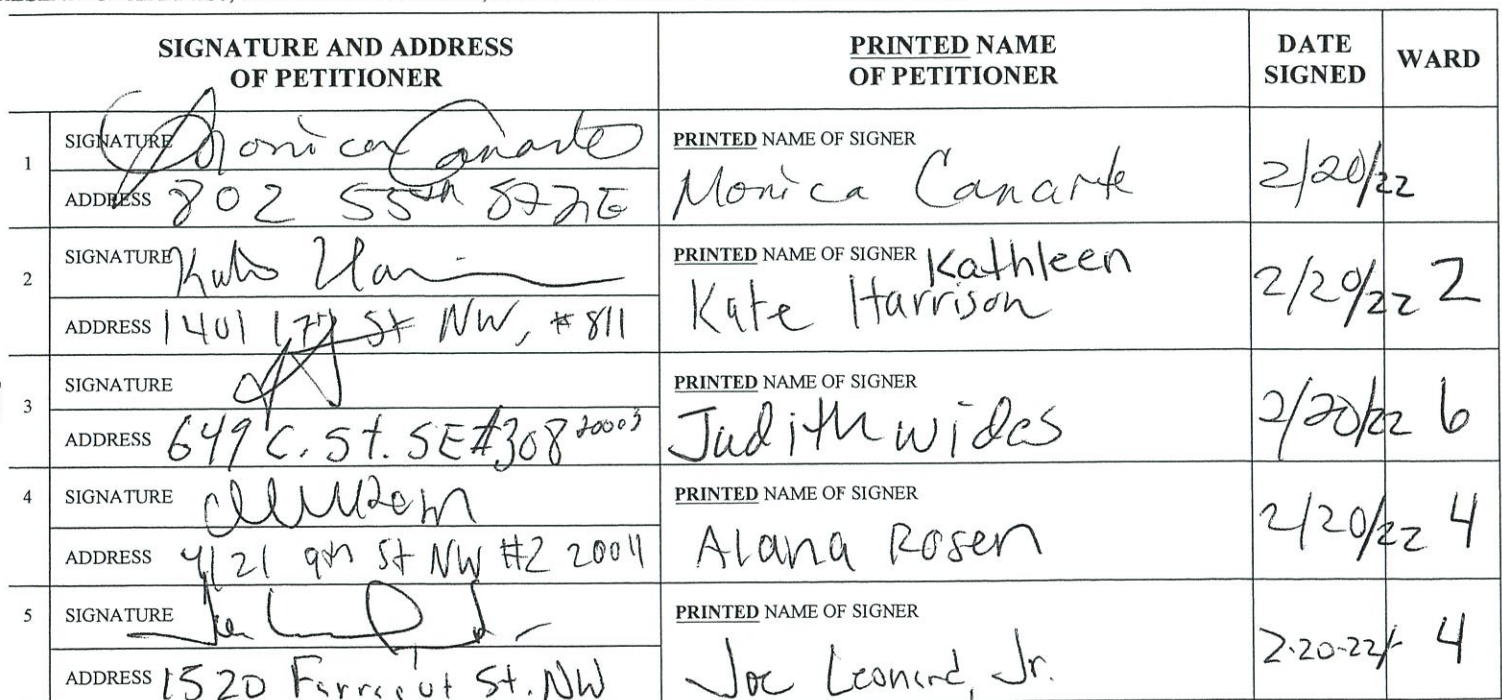 SIGNATURE AND ADDRESS
OF PETITIONER
PRINTED NAME
OF PETITIONER
DATE
SIGNED
WARD
1
SIGNATURE Monica Canarte
ADDRESS 802 55th St NE
PRINTED NAME OF SIGNER
Monica Canarte
2/20/22
2
SIGNATURE
ADDRESS 1401 17th St NW, #811
PRINTED NAME OF SIGNER Kathleen
Kate Harrison
2/20/22 2
3
SIGNATURE
ADDRESS 649 C. St. SE #308 20003
PRINTED NAME OF SIGNER
Judith Wides
2/20/22 6
4
SIGNATURE
ADDRESS 4121 9th St NW #2 20011
PRINTED NAME OF SIGNER
Alana Rosen
2/20/22 4
5
SIGNATURE
ADDRESS 1520 Farragut St. NW
PRINTED NAME OF SIGNER
Joe Leonard, Jr.
2-20-22 4